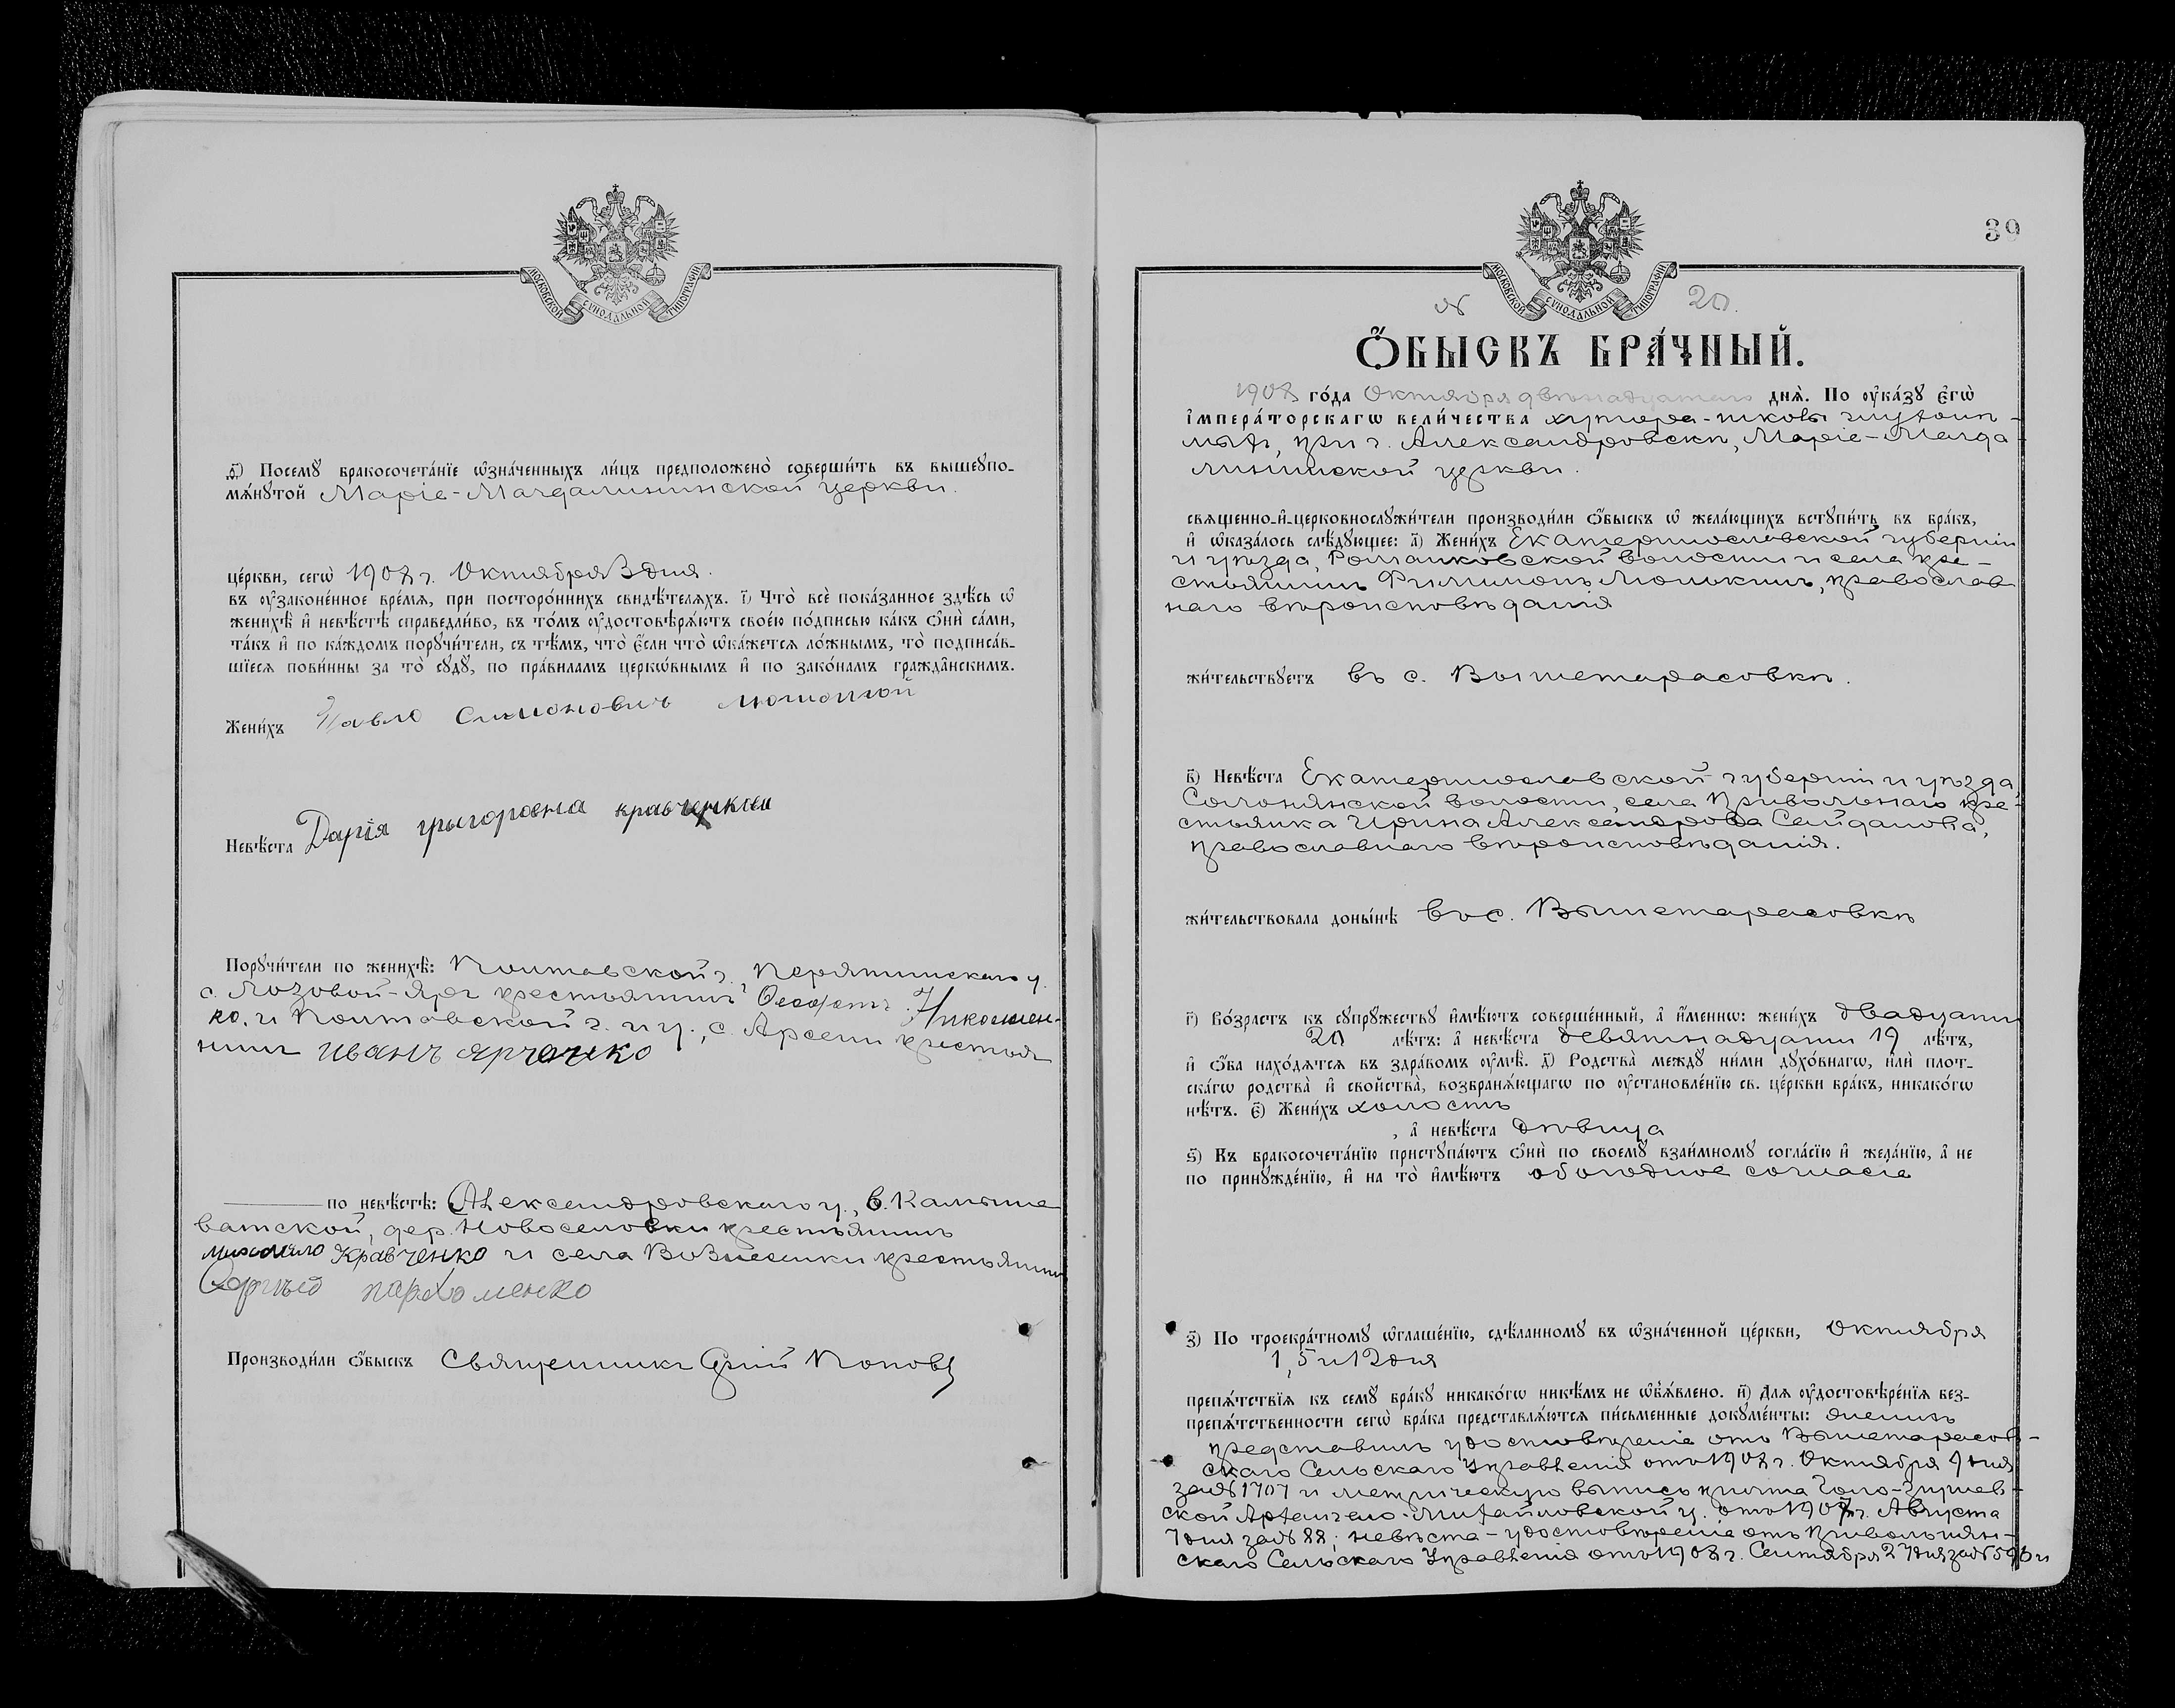 МОСКОВСКОЙ СѴНОДАЛЬНОЙ ТИПОГРАФІИ
д҃) Посемꙋ бракосочета́нїе ѡ҆зна́ченныхъ ли́цъ предположено̀ соверши́ть въ вышеꙋпо-
мѧ́нꙋтой Маріе-Магдалининской церкви.
це́ркви, сегѡ̀ 1908 г. Октября 3 дня.
въ оу҆зако́ненное вре́мѧ, при посторо́ннихъ свидѣ́телѧхъ. і҃) Что̀ всѐ пока́занное здѣ́сь ѡ҆
женихѣ̀ и҆ невѣ́стѣ справедли́во, въ то́мъ оу҆достовѣрѧ́ютъ свое́ю по́дписью ка́къ ѻ҆нѝ са́ми,
та́къ и҆ по ка́ждомъ порꙋчи́тели, съ тѣ́мъ, что̀ є҆́сли что̀ ѡ҆ка́жетсѧ ло́жнымъ, то̀ подписа́в-
шїесѧ пови́нны за то̀ сꙋдꙋ̀, по пра́виламъ церкѡ́внымъ и҆ по зако́намъ гражда́нскимъ.
Жени́хъ Павло Симонович
Невѣ́ста Дарія грыгоровна кравченкова
Порꙋчи́тели по женихѣ̀: Полтавской г., Пирятинскаго у.
с. Лозовой-Яръ крестьянинъ Феофанъ Николаен-
ко, и Полтавской г. и у., с. крестья
нинъ иванъ ярченко
по невѣ́стѣ: Александровскаго у., в. Камыше
ватской, дер. Новоселовки крестьянинъ
михаило Кравченко и села Вознесенки крестьянинъ
Сергѣй пархоменко
Производи́ли ѻ҆́быскъ Священникъ Поповъ
39
МОСКОВСКОЙ СѴНОДАЛЬНОЙ ТИПОГРАФІИ
№ 20.
Ѻ҆́БЫСКЪ БРА́ЧНЫЙ.
1908 го́да Октября двѣнадцатаго днѧ̀. По оу҆ка́зꙋ є҆гѡ̀
і҆мпера́торскагѡ вели́чества хутора-школы глухонѣ-
мыхъ, при г. Александровскѣ, Маріе-Магда-
лининской церкви.
свѧщенно-и҆-церковнослꙋжи́тели производи́ли ѻ҆́быскъ ѡ҆ жела́ющихъ встꙋпи́ть въ бра́къ,
и҆ ѡ҆каза́лось слѣ́дꙋющее: а҃) Жени́хъ Екатеринославской губерніи
и уѣзда, Романковской волости и села кре-
стьянинъ Филимонъ Молькинъ, православ
наго вѣроисповѣданія
жи́тельствꙋетъ въ с. Вышетарасовкѣ.
в҃) Невѣ́ста Екатеринославской губерніи и уѣзда,
Солонянской волости, села Привольнаго кре-
стьянка Ирина Александрова Сайданова,
православнаго вѣроисповѣданія.
жи́тельствовала доны́нѣ въ с. Вышетарасовкѣ
г҃) Во́зрастъ къ сꙋпрꙋ́жествꙋ и҆мѣ́ютъ соверше́нный, а҆ и҆́менно: жени́хъ двадцати
20 лѣ́тъ: а҆ невѣ́ста девятнадцати 19 лѣ́тъ,
и҆ ѻ҆́ба нахо́дѧтсѧ въ здра́вомъ оу҆мѣ̀. д҃) Родства̀ междꙋ̀ ни́ми дꙋхо́внагѡ, и҆лѝ плот-
ска́гѡ родства̀ и҆ сво́йства̀, возбранѧ́ющагѡ по оу҆становле́нїю св. це́ркви бра́къ, никако́гѡ
нѣ́тъ. є҃) Жени́хъ холостъ
, а҆ невѣ́ста дѣвица
ѕ҃) Къ бракосочета́нїю пристꙋпа́ютъ ѻ҆нѝ по своемꙋ̀ взаи́мномꙋ согла́сїю и҆ жела́нїю, а҆ не
по принꙋжде́нїю, и҆ на то̀ и҆мѣ́ютъ обоюдное согласіе
з҃) По троекра́тномꙋ ѡ҆глаше́нїю, сдѣ́ланномꙋ въ ѡ҆зна́ченной це́ркви, Октября
1, 5 и 12 дня
препѧ́тствїѧ къ семꙋ̀ бра́кꙋ никако́гѡ никѣ́мъ не ѡ҆б̾ѧ́влено. и҃) Для оу҆достовѣре́нїѧ без-
препѧ́тственности сегѡ̀ бра́ка представлѧ́ютсѧ пи́сьменные докꙋме́нты: женихъ
представилъ удостовѣреніе отъ Вышетарасов-
скаго Сельскаго Управленія отъ 1908 г. Октября 9 дня
за № 1707 и метрическую выпись причта
ской Архангело-Михайловской ц. отъ 1907 г. Августа
7 дня за № 88; невѣста - удостовѣреніе отъ Привольнян-
скаго Сельскаго Управленія отъ 1908 г. Сентября 27 дня за № 593 и